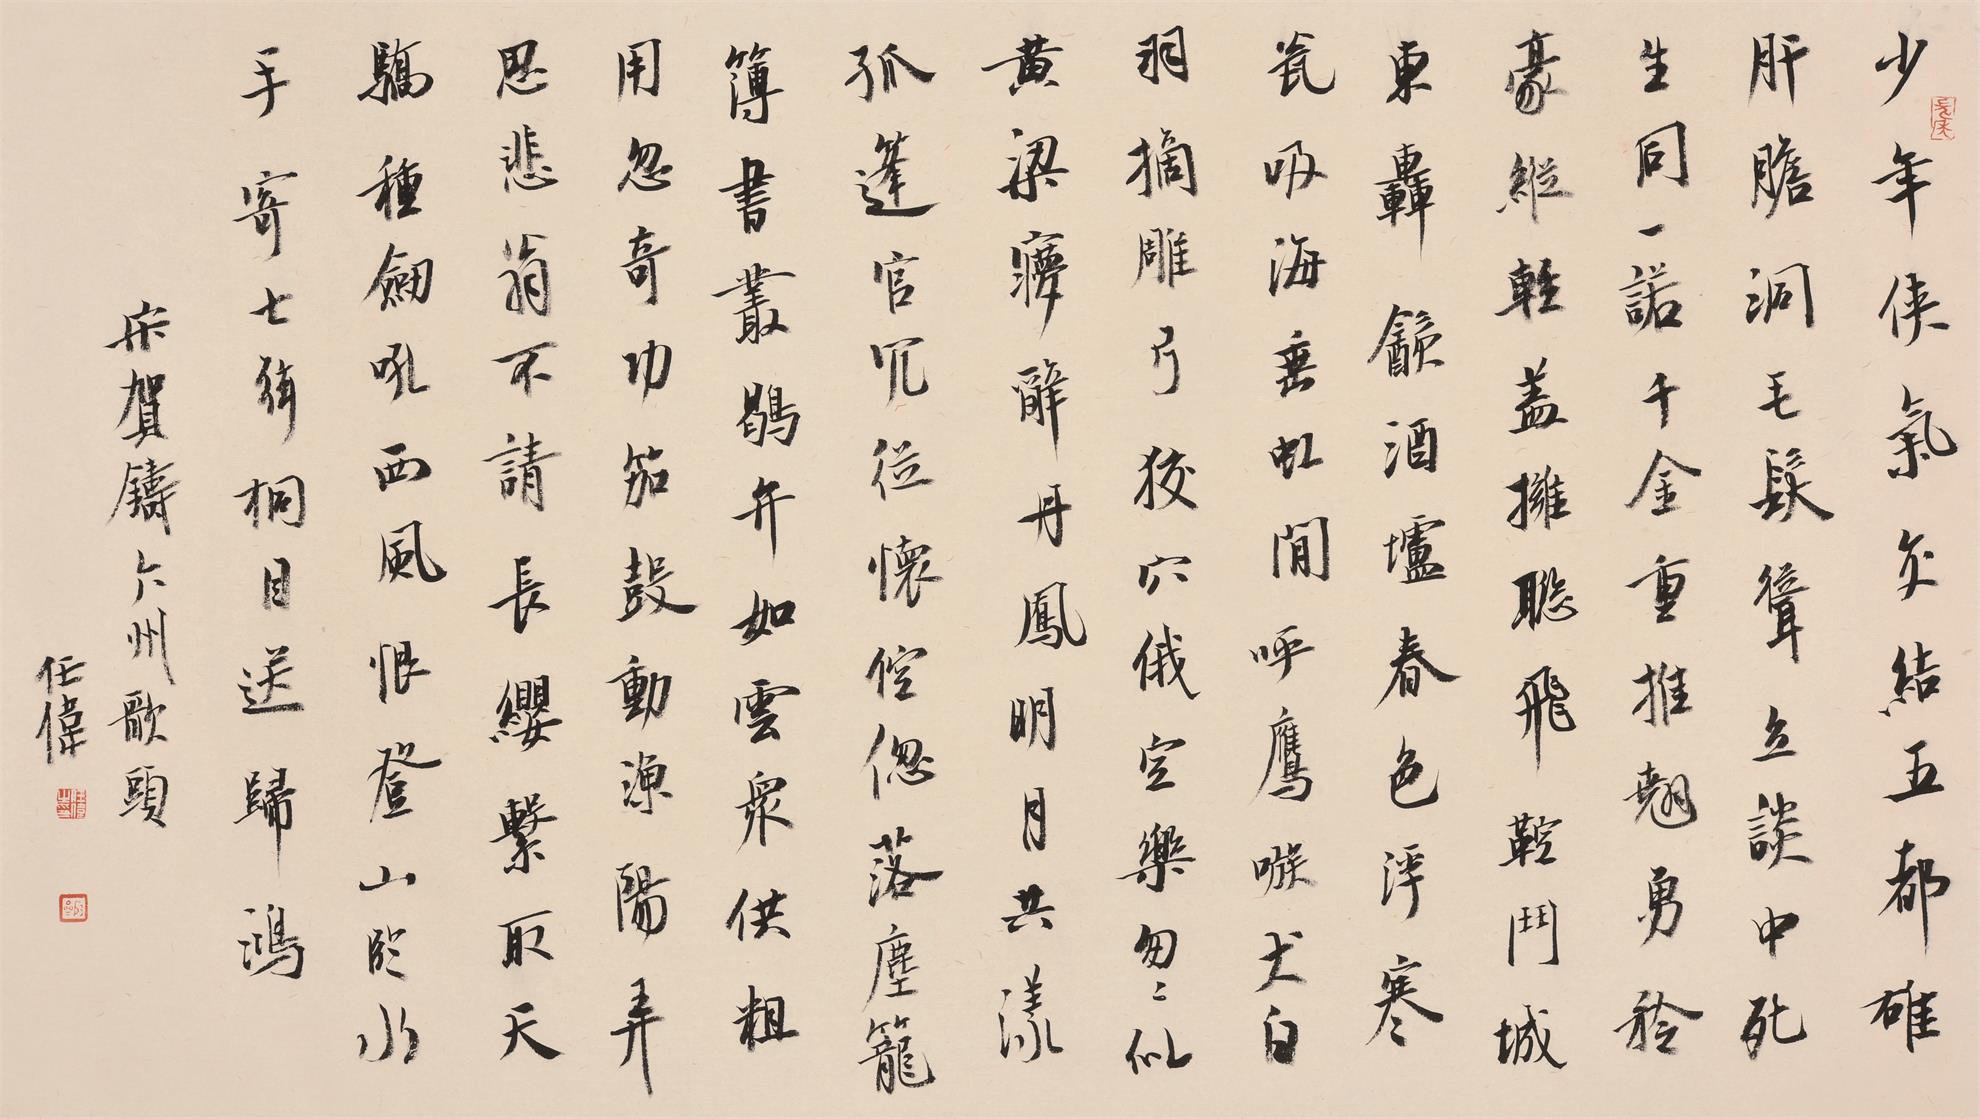 少年俠氣交結五都雄
肝膽洞毛髮聳立談中死
生同一諾千金重推翹勇矜
豪縱輕蓋擁聯飛鞚鬥城
東轟飲酒壚春色浮寒
瓮吸海垂虹閒呼鷹嗾犬白
羽摘雕弓狡穴俄空樂匆〻似
黄粱夢辭丹鳳明月共漾
孤篷官冗從懷倥傯落塵籠
簿書叢鶡弁如雲衆供粗
用忽奇功笳鼓動漁陽弄
思悲翁不請長纓繫取天
驕種劒吼西風恨登山臨水
手寄七絃桐目送歸鴻
宋賀鑄六州歌頭
任偉